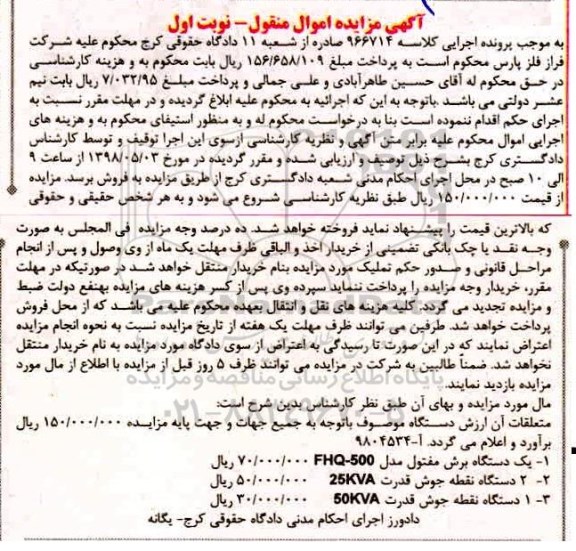 آگهی مزایده اموال منقول- نوبت اول
به موجب پرونده اجرایی کلاسه ۹۶۶۷۱۴ صادره از شعبه ۱۱ دادگاه حقوقی کرج محکوم علیه شرکت
فراز فلز پارس محکوم است به پرداخت مبلغ ۱۵۶/۶۵۸/۱۰۹ ریال بابت محکوم به و هزینه کارشناسی
در حق محکوم له آقای حسین طاهرآبادی و علی جمالی و پرداخت مبلغ ۷/۰۳۲/۹۵ ریال بابت نیم
عشر دولتی می باشد .باتوجه به این که اجرائیه به محکوم علیه ابلاغ گردیده و در مهلت مقرر نسبت به
اجرای حکم اقدام ننموده است بنا به درخواست محکوم له و به منظور استیفای محکوم به و هزینه های
اجرایی اموال محکوم علیه برابر متن آگهی و نظریه کارشناسی ازسوی این اجرا توقیف و توسط کارشناس
دادگستری کرج بشرح ذیل توصیف و ارزیابی شده و مقرر گردیده در مورخ ۱۳۹۸/۰۵/۰۳ از ساعت ۹
الی ۱۰ صبح در محل اجرای احکام مدنی شعبه دادگستری کرج از طریق مزایده به فروش برسد. مزایده
از قیمت ۱۵۰/۰۰۰/۰۰۰ ریال طبق نظریه کارشناسی شروع می شود و به هر شخص حقیقی و حقوقی
که بالاترین قیمت را پیشنهاد نماید فروخته خواهد شد. ده درصد وجه مزایده فی المجلس به صورت
وجه نقد یا چک بانکی تضمینی از خریدار اخذ و الباقی ظرف مهلت یک ماه از وی وصول و پس از انجام
مراحل قانونی و صدور حکم تملیک مورد مزایده بنام خریدار منتقل خواهد شد در صورتیکه در مهلت
مقرر، خریدار وجه مزایده را پرداخت ننماید سپرده وی پس از کسر هزینه های مزایده بهنفع دولت ضبط
و مزایده تجدید می گردد. کلیه هزینه های نقل و انتقال بعهده محکوم علیه می باشد که از محل فروش
پرداخت خواهد شد. طرفین می توانند ظرف مهلت یک هفته از تاریخ مزایده نسبت به نحوه انجام مزایده
اعتراض نمایند که در این صورت تا رسیدگی به اعتراض از سوی دادگاه مورد مزایده به نام خریدار منتقل
نخواهد شد. ضمناً طالبین به شرکت در مزایده می توانند ظرف ۵ روز قبل از مزایده با اطلاع از مال مورد
مزایده بازدید نمایند.
مال مورد مزایده و بهای آن طبق نظر کارشناس بدین شرح است:
متعلقات آن ارزش دستگاه موصوف باتوجه به جمیع جهات و جهت پایه مزایده ۱۵۰/۰۰۰/۰۰۰ ریال
برآورد و اعلام می گردد. آ-۹۸۰۴۵۳۴
۱- یک دستگاه برش مفتول مدل FHQ-500 ۷۰/۰۰۰/۰۰۰ ریال
۲- ۲ دستگاه نقطه جوش قدرت 25KVA ۵۰/۰۰۰/۰۰۰ ریال
۳- ۱ دستگاه نقطه جوش قدرت 50KVA ۳۰/۰۰۰/۰۰۰ ریال
دادورز اجرای احکام مدنی دادگاه حقوقی کرج- یگانه